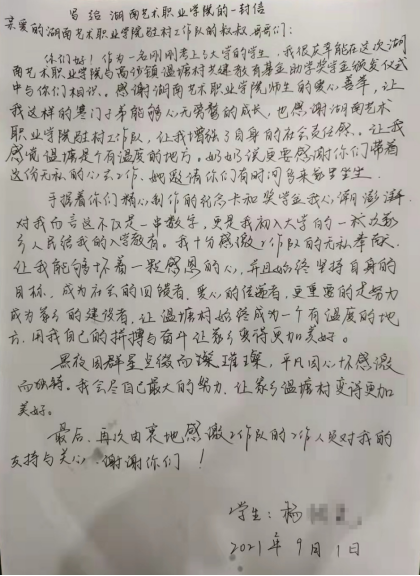 写给湖南艺术职业学院的一封信
亲爱的湖南艺术职业学院驻村工作队的叔叔、哥哥们:
你们好!作为一名刚刚考上大学的学生,我很荣幸能在这次湖
南艺术职业学院与高沙镇温塘村共建教育基金助学奖学金颁发仪式
中与你们相识。感谢湖南艺术职业学院师生的爱心善举,让
我这样的寒门子弟能够心无旁骛的成长,也感谢湖南艺术
职业学院驻村工作队,让我增强了自身的社会责任感。让我
感觉温塘是个有温度的地方,奶奶说更要感谢你们带着
这份无私的心去工作,她邀请你们有时间多来家里坐坐。
手握着你们精心制作的祝福卡和奖学金我心潮澎湃
对我而言这不仅是一串数字,更是我初入大学的一次家
乡人民给我的入学教育。我十分感激工作队的无私奉献,
让我能够怀着一颗感恩的心,并且始终坚持自身的
目标,成为社会的回馈者,爱心的传递者,更重要的是努力
成为家乡的建设者,让温塘村始终成为一个有温度的地
方,用我自己的拼搏与奋斗让家乡变得更加美好。
黑夜因群星点缀而璀璨,平凡因心怀感激
而。我会尽自己最大的努力,让家乡温塘村变得更加
美好。
最后,再次由衷地感激工作队的工作人员对我的
支持与关心,谢谢你们!
学生:杨
2021年9月1日